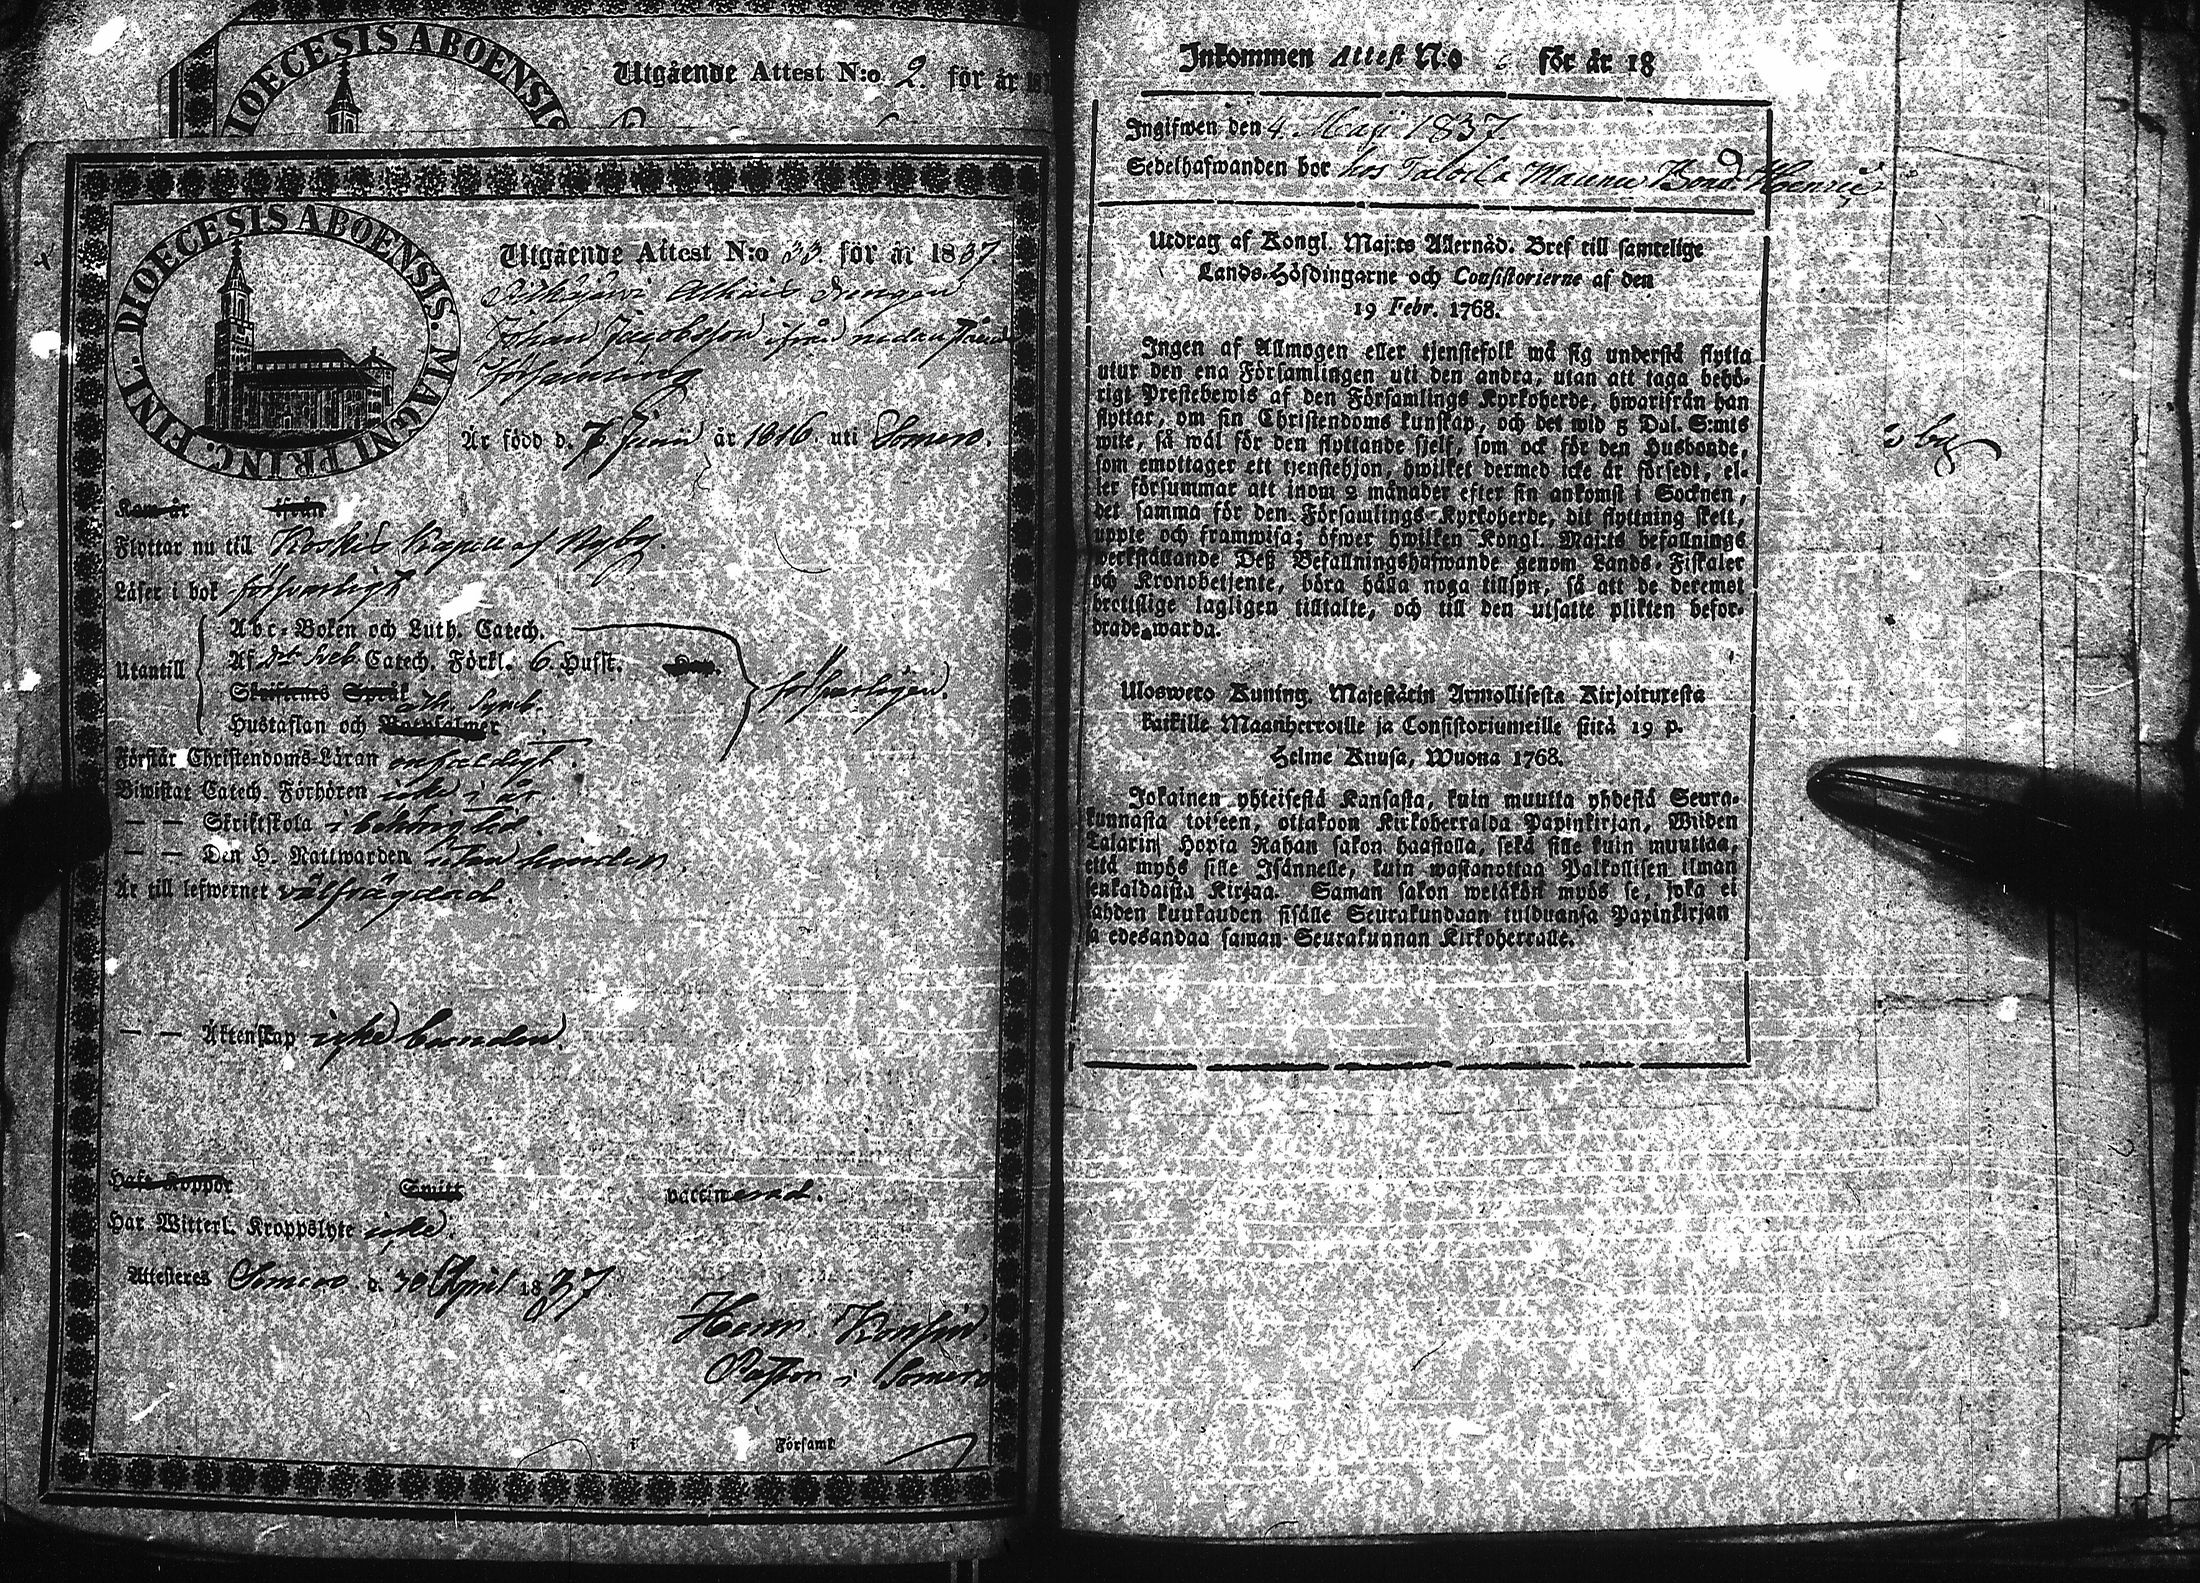 DIOECESIS ABOENSIS
Utgående Attest N:o 2. för år 18
DIOECESIS ABOENSIS. MAGNI PRINC. FINL.
Utgående Attest N:o 33 för år 1837.
Drengen
Johan Jacobsson ifrån nedanstående
Församling
Är född d. 7 Junii år 1816 uti Somero.
Kom år ifrån
Flyttar nu till Koskis Kapell af
Läser i bok försvarligt
Abc-Boken och Luth. Catech.
Utantill Af Catech. Förkl. 6 Hufst. försvarligen.
Skriftenes Språk Ath. Symb.
Hustaflan och Botpsalmer
Förstår Christendoms-Läran enfaldigt.
Biwistat Catech. Förhören icke i år
— — Skriftskola i behörig tid.
— — Den H. Nattwarden utan hinder.
Är till lefwernet välfrägdad.
— — Äktenskap icke bunden.
Haft Koppor Smitt vaccinerad.
Har Witterl. Kroppslyte icke.
Attesteres Somero d. 30 April 1837.
Henr.
Pastor i Somero
i Församl
Inkommen Attest N:o för år 18
Ingifwen den 4. Maji 1837
Sedelhafwanden bor hos Talvila
Utdrag af Kongl. Maj:ts Allernåd. Bref till samtelige
Lands-Höfdingarne och Consistorierne af den
19 Febr. 1768.
Ingen af Allmogen eller tjenstefolk må sig understå flytta
utur den ena Församlingen uti den andra, utan att taga behö-
rigt Prestebewis af den Församlings Kyrkoherde, hwarifrån han
flyttar, om sin Christendoms kunskap, och det wid 5 Dal. S:mts
wite, så wäl för den flyttande sjelf, som ock för den Husbonde,
som emottager ett tjenstehjon, hwilket dermed icke är försedt, el-
ler försummar att inom 2 månader efter sin ankomst i Socknen,
det samma för den Församlings Kyrkoherde, dit flyttning skett,
upple och framwisa; öfwer hwilken Kongl. Maj:ts befallnings
werkställande Deß Befallningshafwande genom Lands-Fiskaler
och Kronobetjente, böra hålla noga tillsyn, så att de deremot
brottslige lagligen tilltalte, och till den utsatte plikten befor-
drade warda.
Ulosweto Kuning. Majestätin Armollisesta Kirjoituxesta
kaikille Maanherroille ja Consistoriumeille siitä 19 p.
Helme Kuusa, Wuona 1768.
Jokainen yhteisestä Kansasta, kuin muutta yhdestä Seura-
kunnasta toiseen, ottakoon Kirkoherralda Papinkirjan, Wiiden
Talarin Hopia Rahan sakon haastolla, sekä sille kuin muuttaa,
että myös sille Isännelle, kuin wastanottaa Palkollisen ilman
senkaldaista Kirjaa. Saman sakon wetäkön myös se, joka ei
kahden kuukauden sisälle Seurakundaan tulduansa Papinkirjan
sa edesandaa saman Seurakunnan Kirkoherralle.